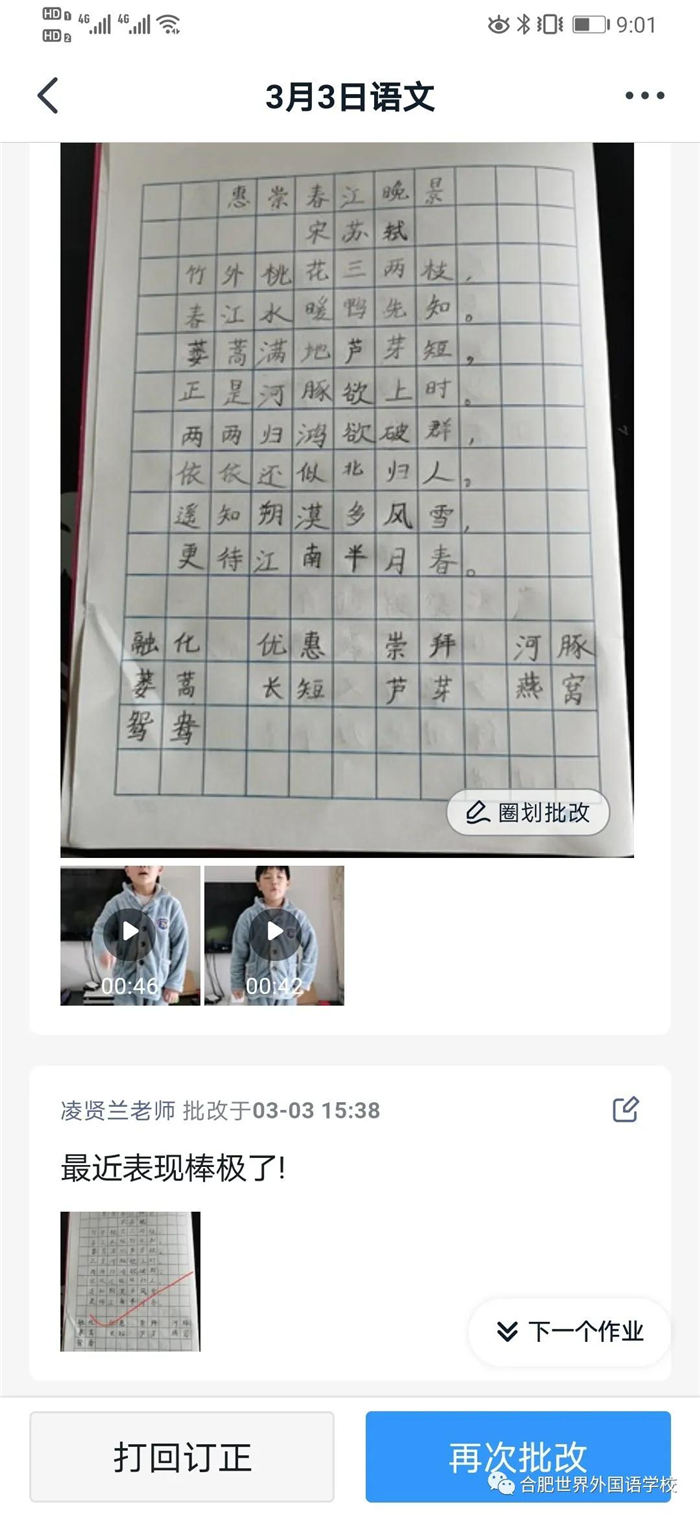 HD 1 4G 4G 9:01
HD 2
3月3日语文
惠崇春江晚景
宋苏轼
竹外桃花三两枝，
春江水暖鸭先知。
蒌蒿满地芦芽短，
正是河豚欲上时。
两两归鸿欲破群，
依依还似北归人。
遥知朔漠多风雪，
更待江南半月春。
融化 优惠 崇拜 河豚
蒌蒿 长短 芦芽 燕窝
鸳鸯
圈划批改
00:46 00:42
凌贤兰老师 批改于03-03 15:38
最近表现棒极了!
下一个作业
打回订正 再次批改
合肥世界外国语学校